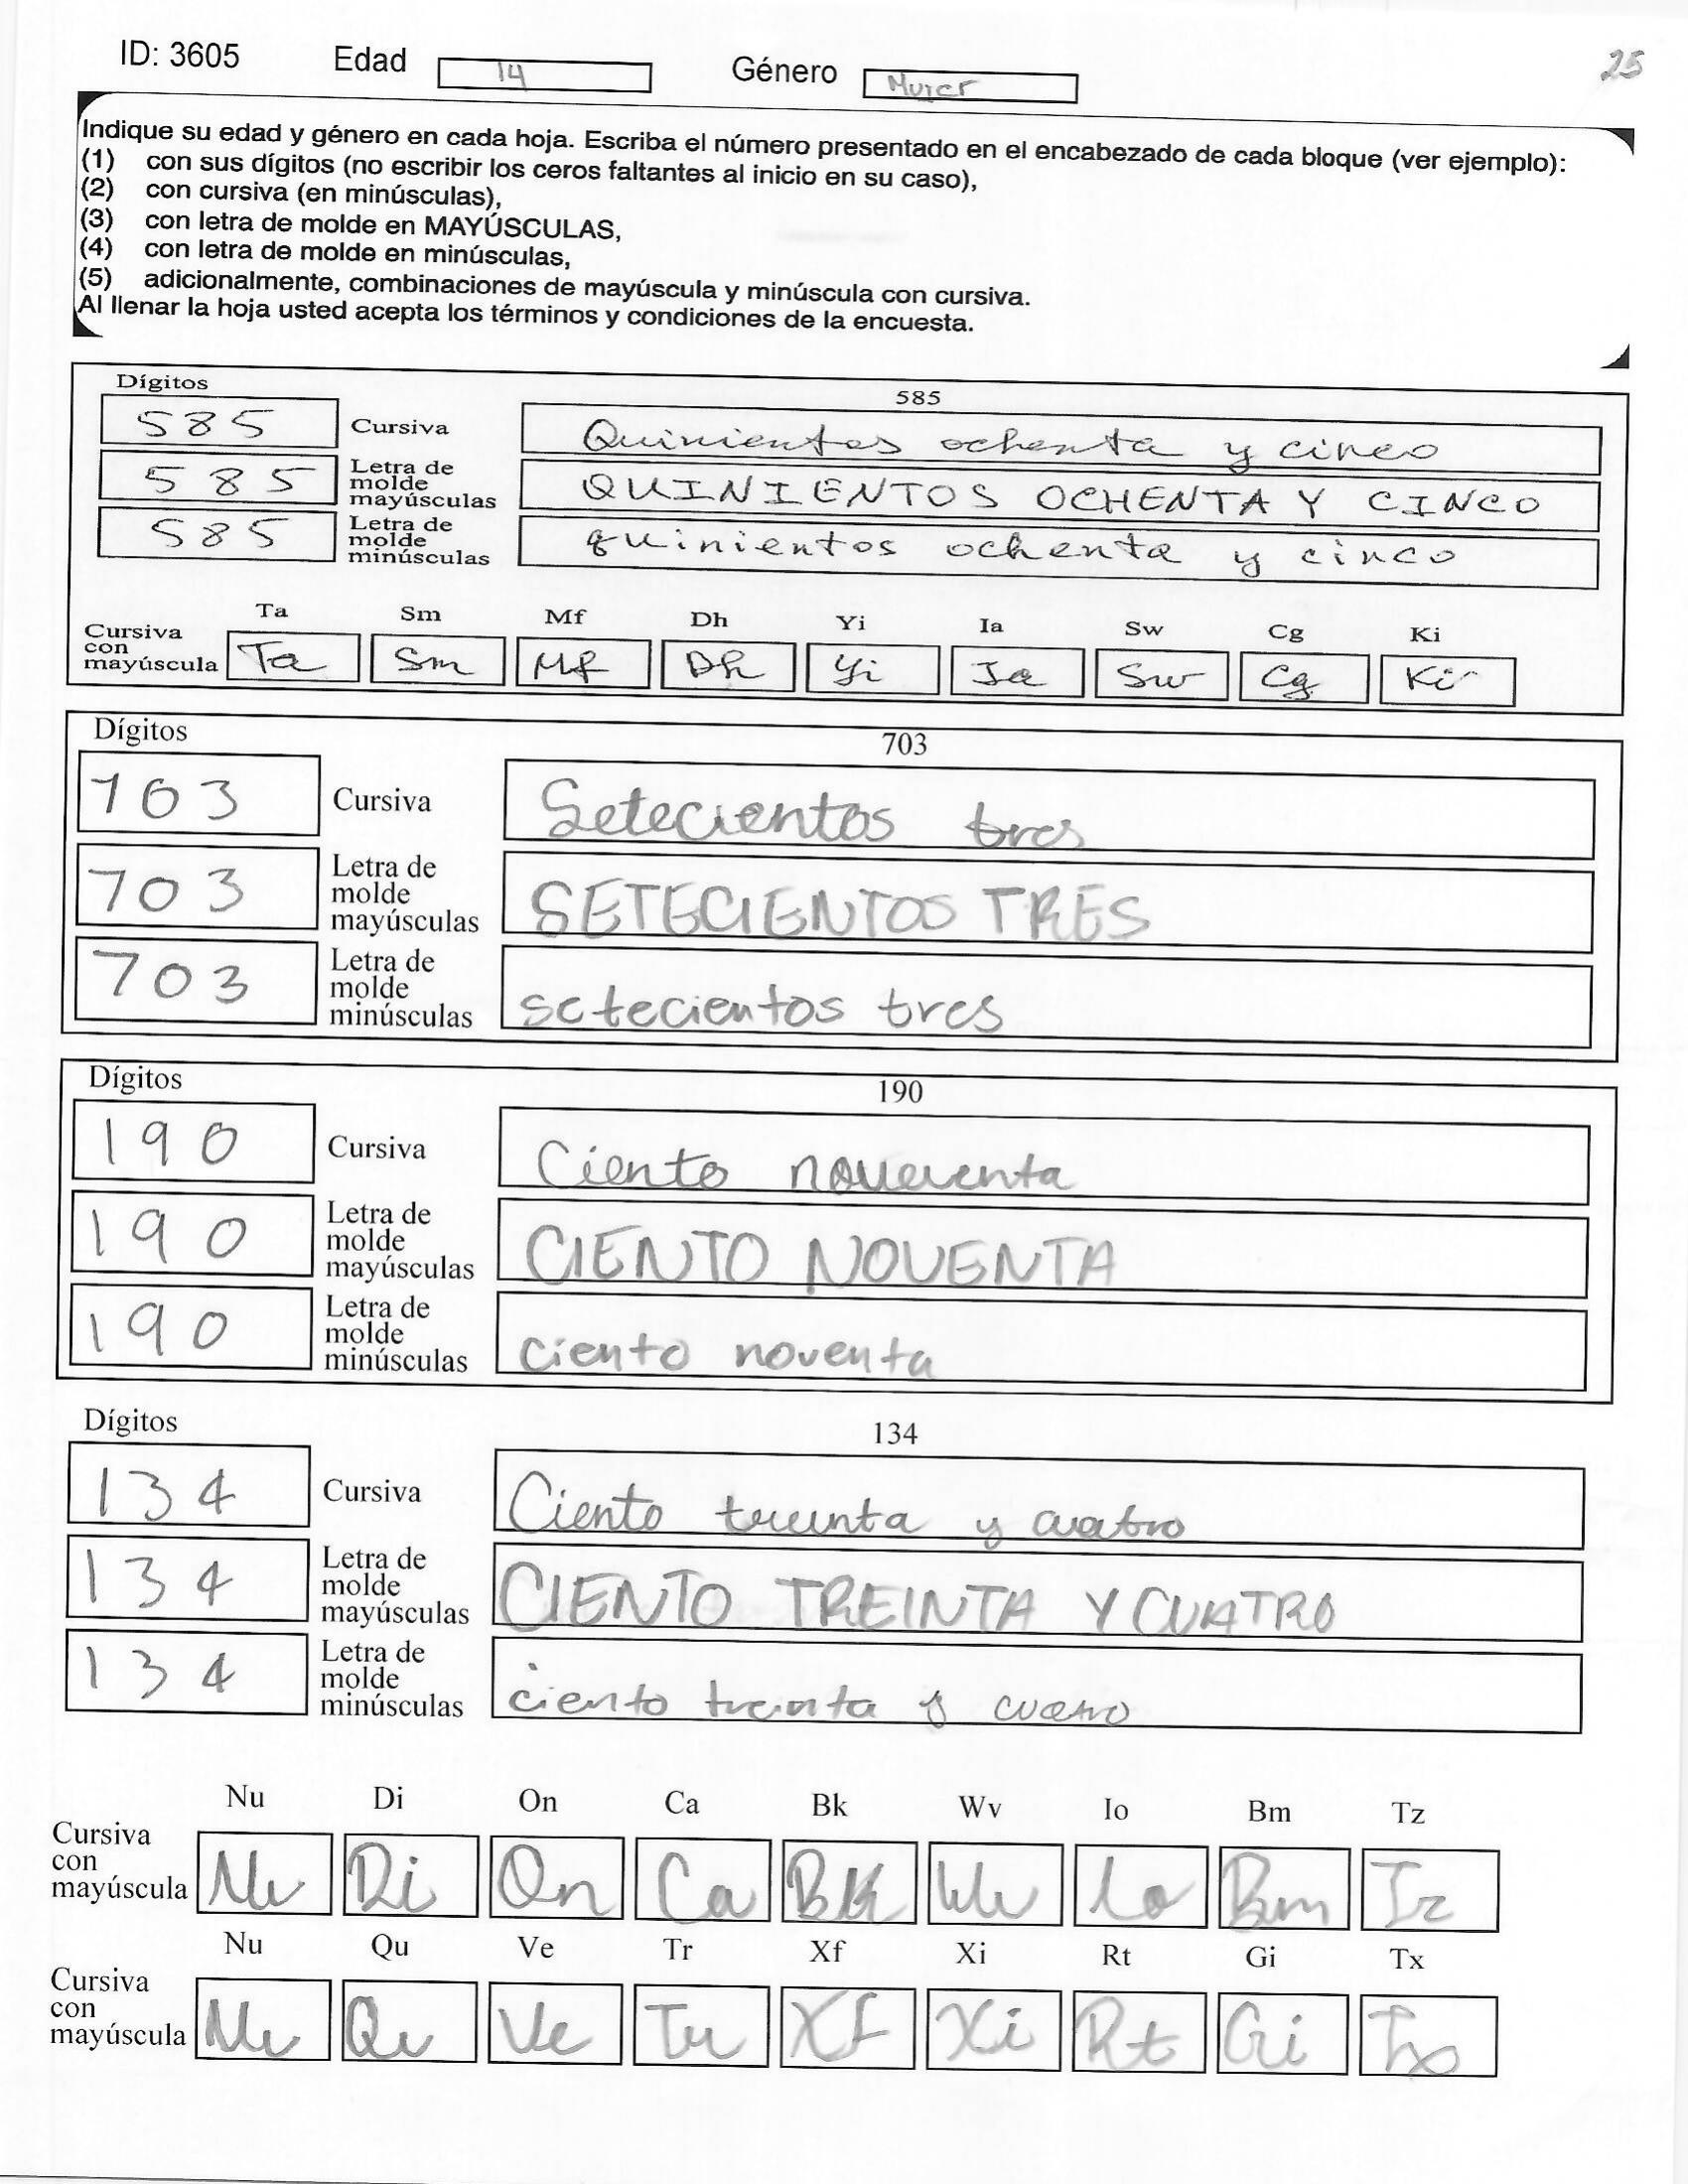 ID: 3605 Edad 14 Género Mujer 25
Indique su edad y género en cada hoja. Escriba el número presentado en el encabezado de cada bloque (ver ejemplo):
(1) con sus dígitos (no escribir los ceros faltantes al inicio en su caso),
(2) con cursiva (en minúsculas),
(3) con letra de molde en MAYÚSCULAS,
(4) con letra de molde en minúsculas,
(5) adicionalmente, combinaciones de mayúscula y minúscula con cursiva.
Al llenar la hoja usted acepta los términos y condiciones de la encuesta.
Dígitos 585
585 Cursiva Quinientos ochenta y cinco
585 Letra de molde mayúsculas QUINIENTOS OCHENTA Y CINCO
585 Letra de molde minúsculas quinientos ochenta y cinco
Ta Sm Mf Dh Yi Ia Sw Cg Ki
Cursiva con mayúscula Ta Sm Mf Dh Yi Ia Sw Cg Ki
Dígitos 703
703 Cursiva Setecientos tres
703 Letra de molde mayúsculas SETECIENTOS TRES
703 Letra de molde minúsculas setecientos tres
Dígitos 190
190 Cursiva Ciento noveventa
190 Letra de molde mayúsculas CIENTO NOVENTA
190 Letra de molde minúsculas ciento noventa
Dígitos 134
134 Cursiva Ciento treinta y cuatro
134 Letra de molde mayúsculas CIENTO TREINTA Y CUATRO
134 Letra de molde minúsculas ciento treinta y cuatro
Nu Di On Ca Bk Wv Io Bm Tz
Cursiva con mayúscula Nu Di On Ca Bk Wv Io Bm Tz
Nu Qu Ve Tr Xf Xi Rt Gi Tx
Cursiva con mayúscula Nu Qu Ve Tr Xf Xi Rt Gi Tx